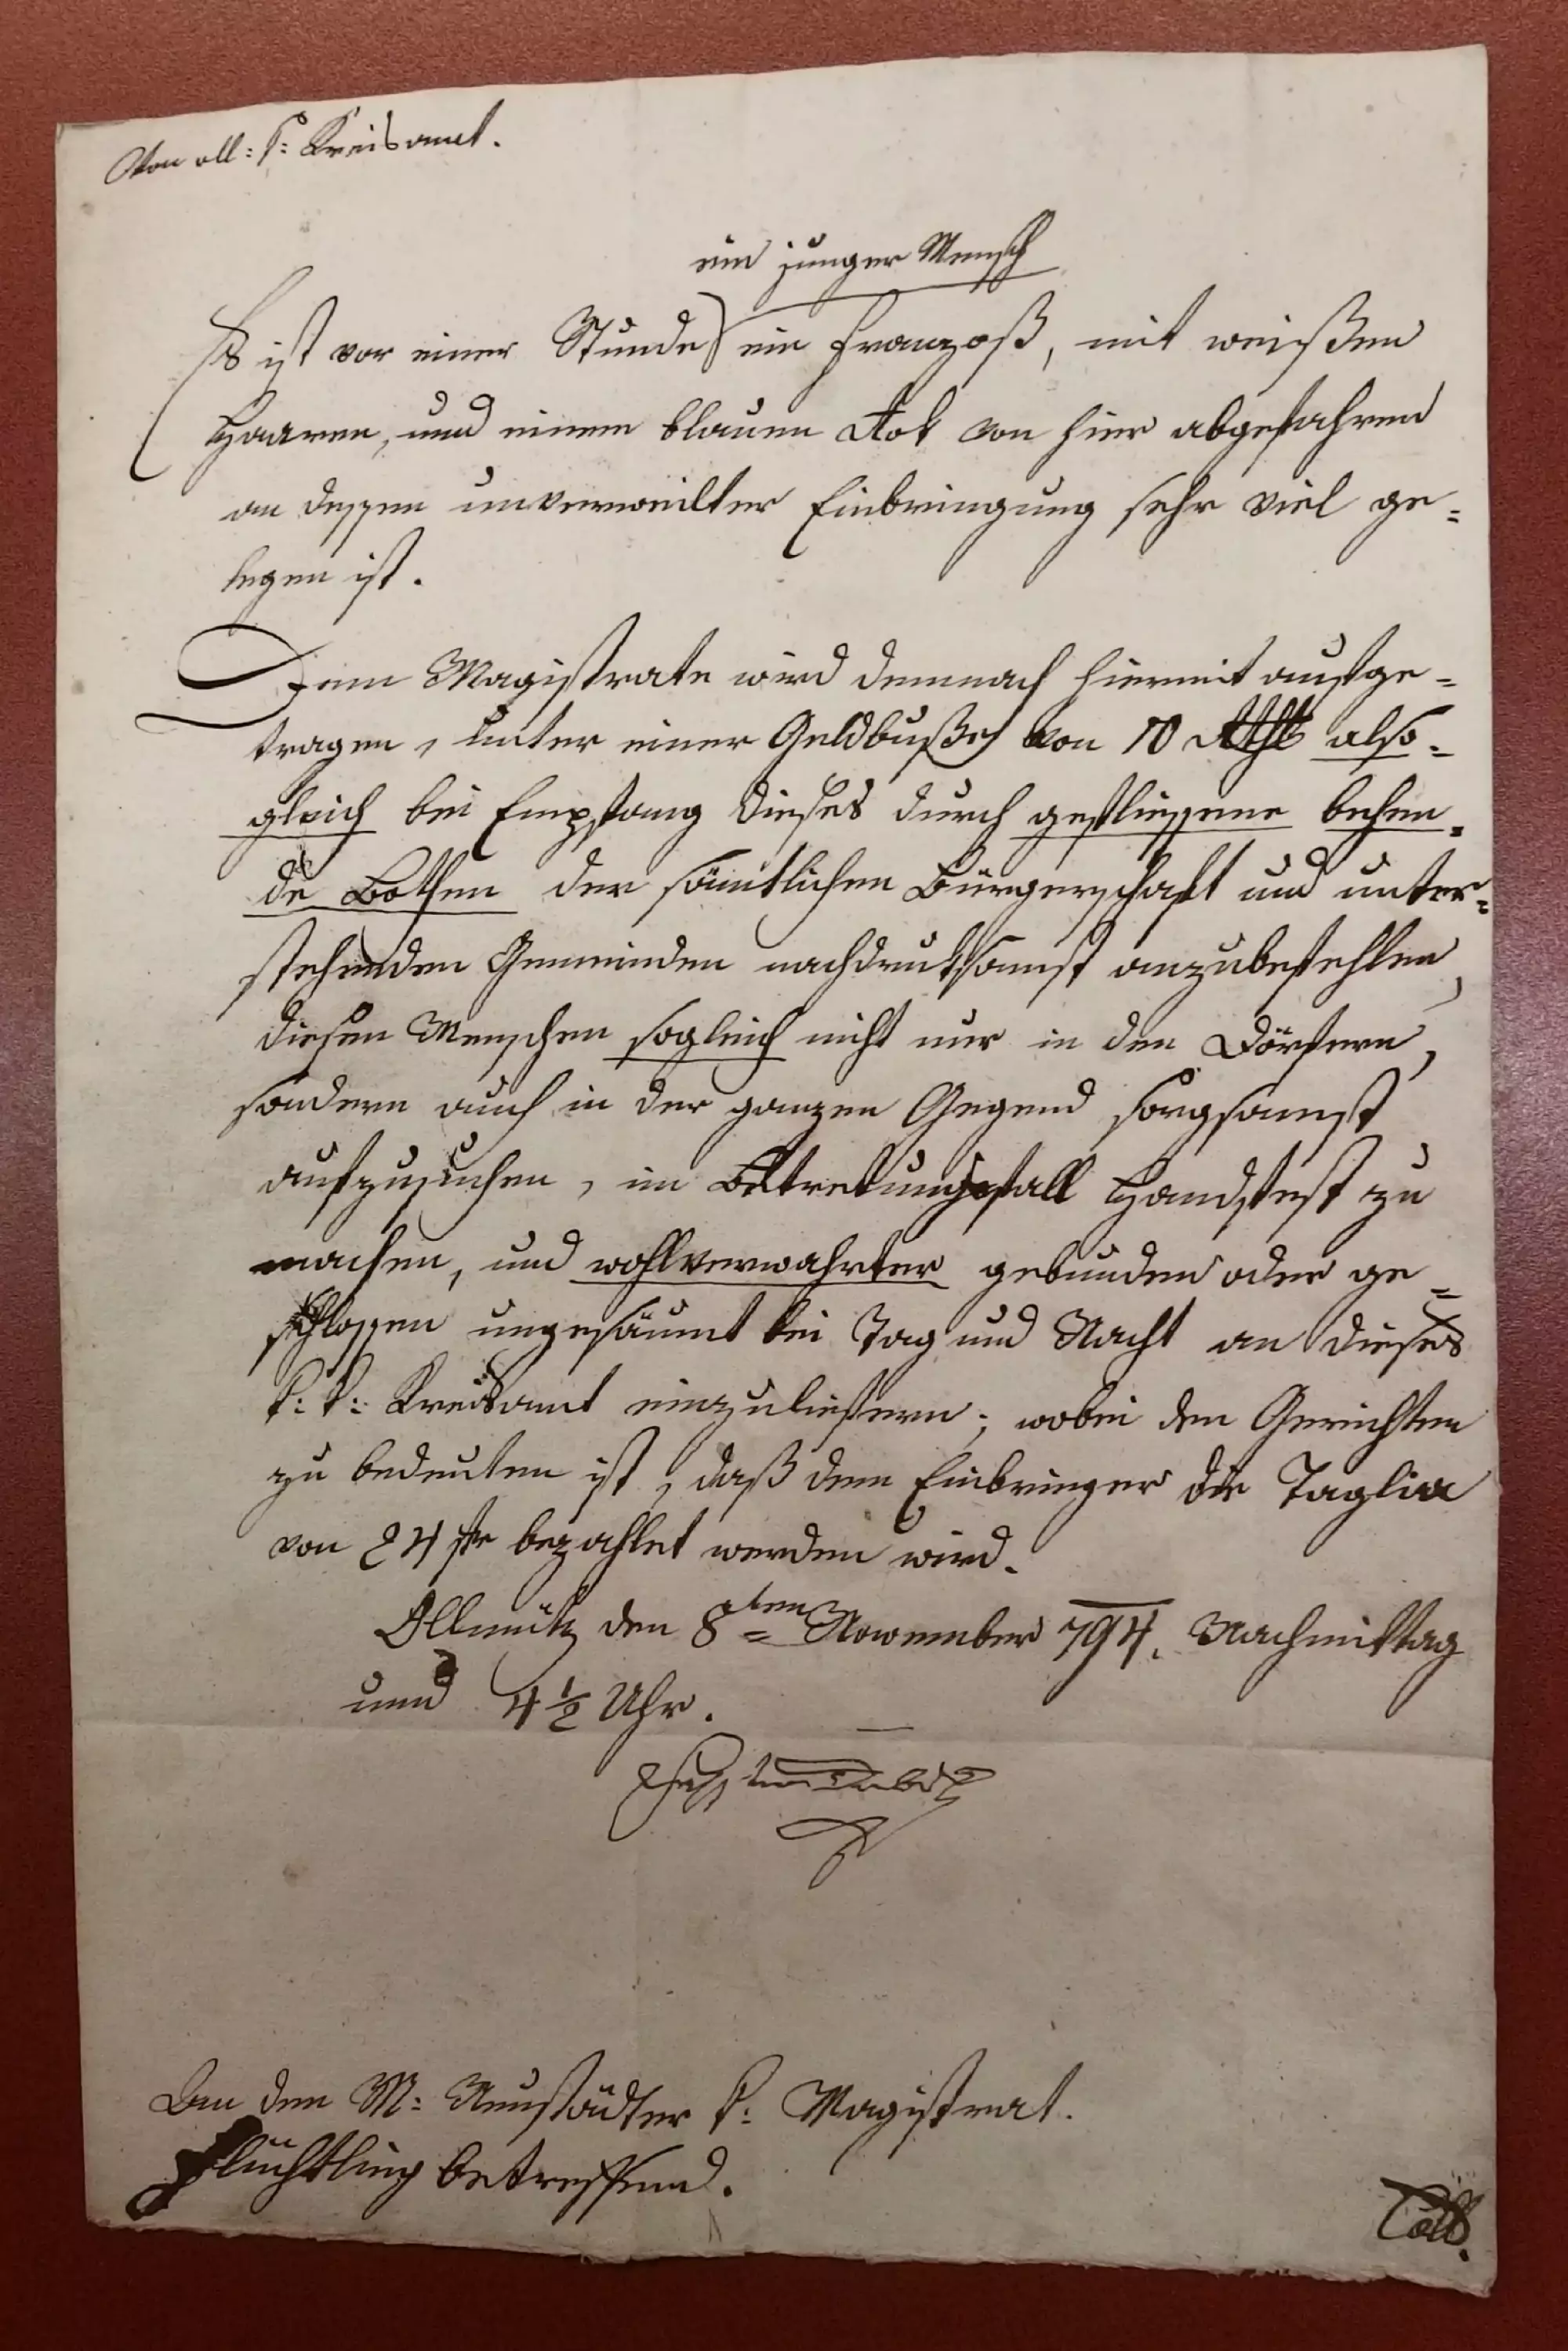 Vom oll: k: Kreisamt.
ein junger Mensch
Es ist vor einer Stunde ein Franzoß, mit weißen
Haaren, und einem blauen Rok von hier abgefahren
an dessen unverweilter Einbringung sehr viel ge=
legen ist.
Dem Magistrate wird demnach hiermit aufge=
tragen, unter einer Geldbuße von 10 also=
gleich bei Empfang dieses durch geflissene behen=
de Bothen der sämtlichen Bürgerschaft und unter=
stehenden Gemeinden nachdruksamst anzubefehlen,
diesen Menschen sogleich nicht nur in den Dörfern,
sondern auch in der ganzen Gegend sorgsamst
aufzusuchen, im Betretungsfall Handfest zu
machen, und wohlverwahrter gebunden oder ge=
schlossen ungesäumt bei Tag und Nacht an dieses
k: k: Kreisamt einzuliefern; wobei den Gerichten
zu bedeuten ist, daß dem Einbringer die Taglia
von 24 bezahlet werden wird.
Ollmütz den 8ten November 794. Nachmittag
um 4 1/2 Uhr.
An den M: Neustädter k: Magistrat.
Flüchtling betreffend.